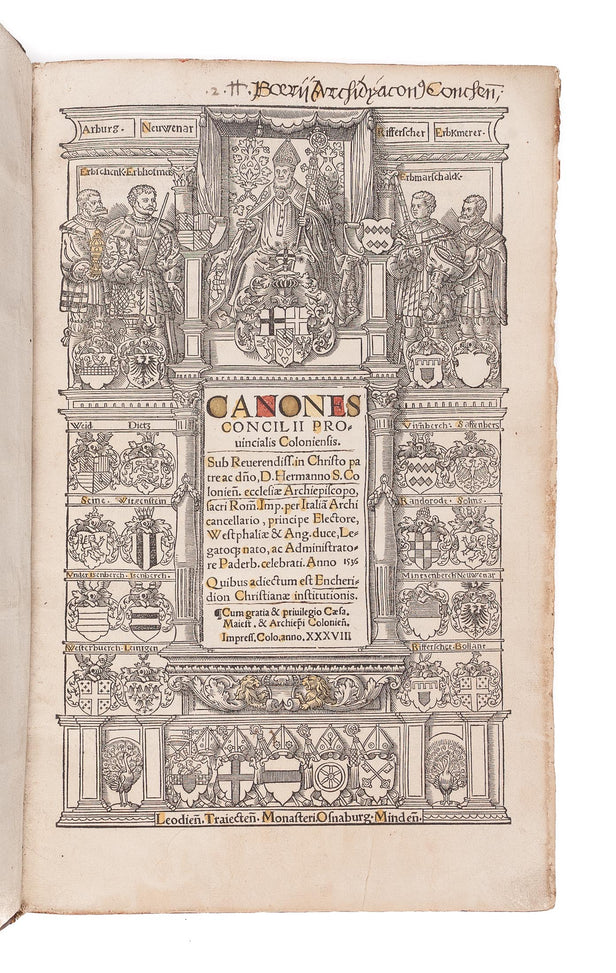 Arburg. Neuwenar
Rifferscher Erbkmerer.
Erbschenk. Erbhofmeis
Erbmarschalck.
CANONES
CONCILII PRO-
uincialis Coloniensis.
Sub Reuerendiss. in Christo pa
tre ac dño, D. Hermanno S. Co
lonień. ecclesiæ Archiepiscopo,
sacri Rom̃. Imp. per Italiã Archi
cancellario, principe Electore,
Westphaliæ & Ang. duce, Le-
gatoq; nato, ac Administrato-
re Paderb. celebrati. Anno 1536
Quibus adiectum est Encheri-
dion Christianæ institutionis.
¶Cum gratia & priuilegio Cæsa.
Maiest. & Archiepĩ Colonień.
Impress. Colo. anno. XXXVIII
Weid Dietz
Seine. Witgenstein
Nider Isenberch. Isenberch.
Westerbuerch. Leinigen
Virnberch. Saffenberg
Randorode. Solms.
Mintzenberch Neuwenar
Rifferscher. Bollant
Leodień. Traiecteń. Monasteri. Osnaburg. Mindeń.